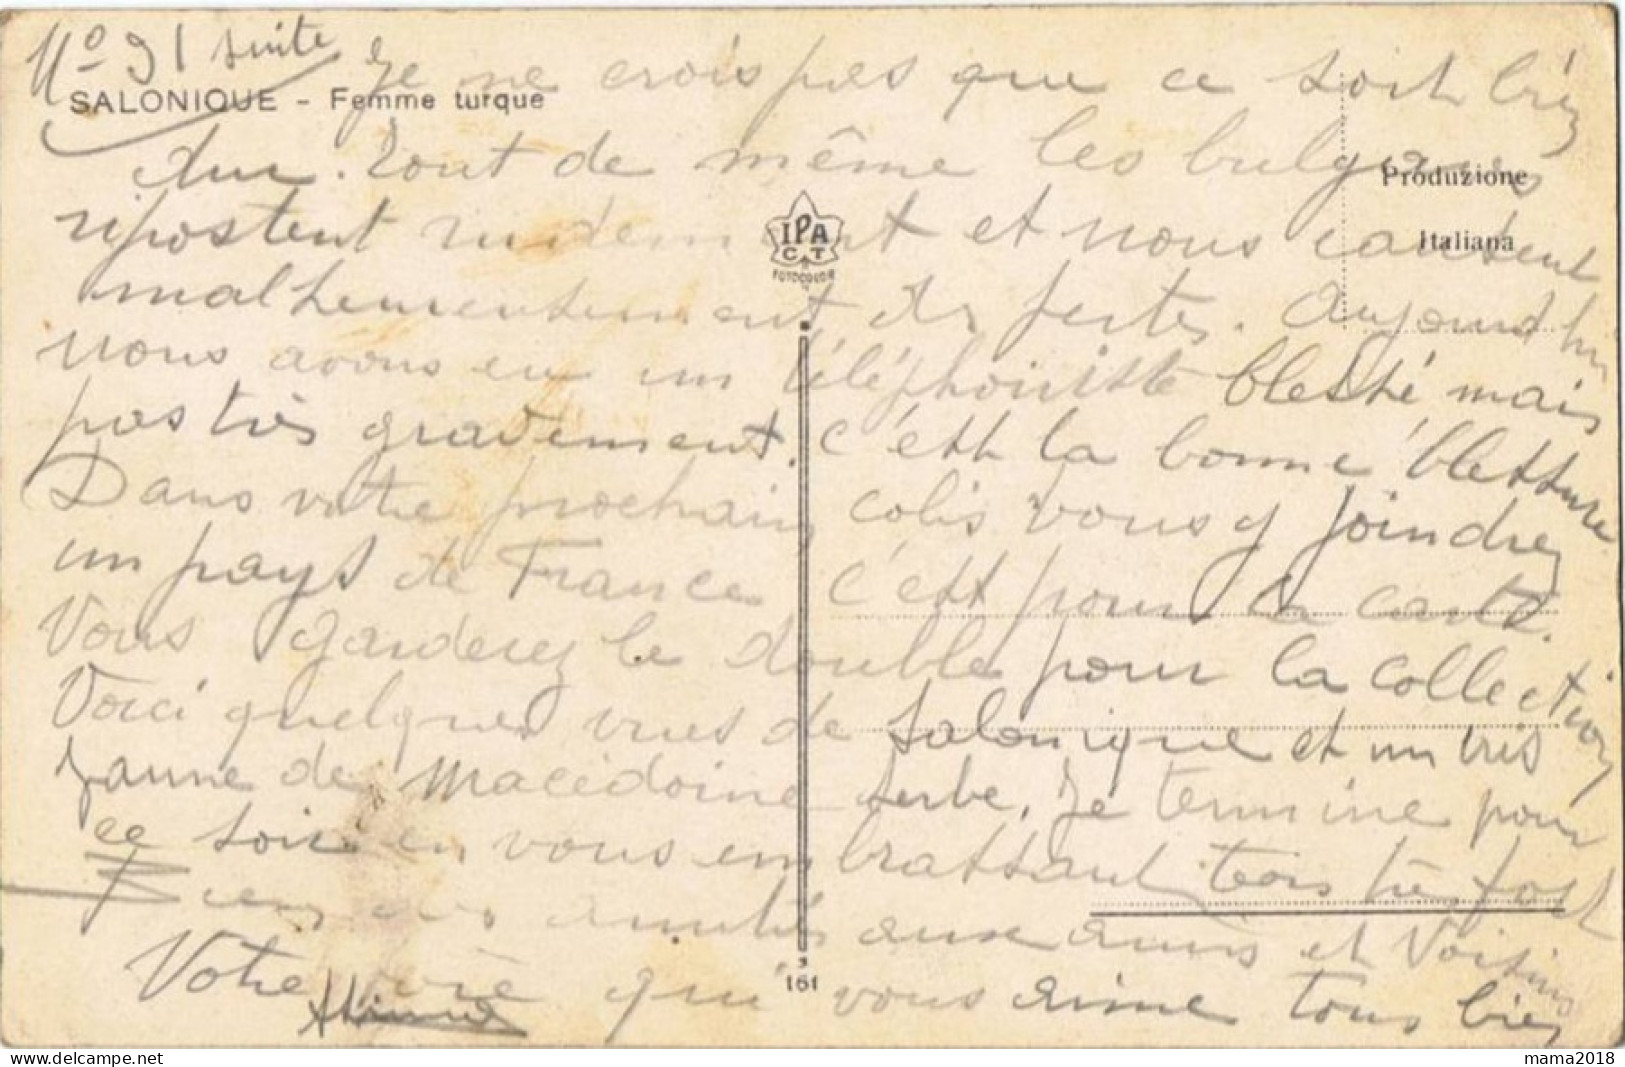 N° 91 suite Je ne crois pas que ce soit bien
SALONIQUE - Femme turque
dur. Tout de même les bulgares
Produzione
ripostent rudement et nous causent
Italiana
IPA
CT
FOTOCOLOR
malheureusement des pertes. Aujourd'hui
nous avons eu un téléphoniste blessé, mais
pas très gravement. C'est la bonne blessure
Dans votre prochain colis vous y joindrez
un pays de France c'est pour la carte.
Vous garderez le double pour la collection
Voici quelques vues de Salonique et un
jaune de Macédoine serbe. Je termine pour
ce soir en vous embrassant tous très fort
Bien des amitiés aux amis et Voisins
Votre qui vous aime tous bien
161
mama2018